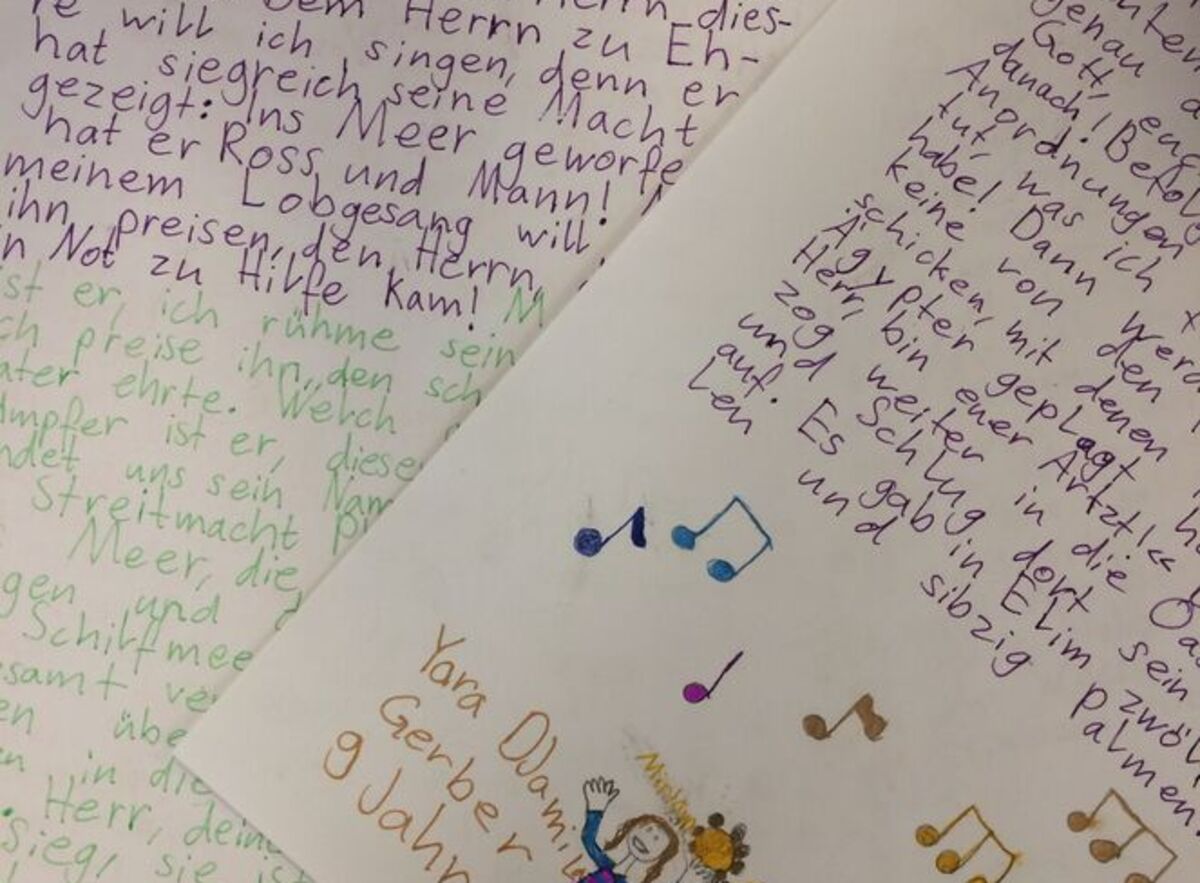 dies-
re will ich dem Herrn zu Eh-
hat siegreich singen, denn er
gezeigt: Ins seine Macht
hat er Ross Meer geworfe
meinem Lobgesang und Mann!
ihn preisen, den will
n Not zu Hilfe Herrn,
kam! M
st er, ich rühme sein
ch preise ihn, den sch
ater ehrte. Welch
ämpfer ist er, diese
ndet uns sein Nam
Streitmacht
Meer, die
gen und
Schilfmee
samt ve
en übe
en in die
Herr, deine
Sieg, sie is
genau
Gott, euc
danach! Befol
Anordnungen
tut, was ich
habe! Dann werd
keine von den
schicken, mit denen
Ägypter geplagt
Herr, bin euer Artzt!«
zog weiter in die
und Schlug dort sein
auf. Es gab in Elim zwöl
Len und sibzig Palmen
Yara DJamila
Gerber
9 Jahr
Mirjam